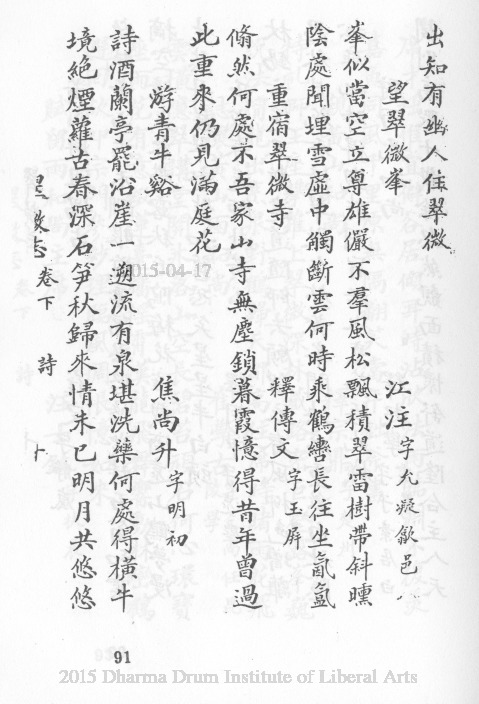 出知有幽人住翠微
望翠微峯　江注字允凝歙邑人
峯似當空立尊雄儼不羣風松飄積翠雷樹帶斜曛
陰處聞埋雪虛中觸斷雲何時乘鶴轡長往坐氤氳
重宿翠微寺　釋傳文字玉屏
翛然何處不吾家山寺無塵鎖暮霞憶得昔年曾過
此重來仍見滿庭花
游青牛谿　焦尚升字明初
詩酒蘭亭罷沿崖一遡流有泉堪洗藥何處得橫牛
境絶煙蘿古春深石笋秋歸來情未已明月共悠悠
志卷下　詩
91
2015-04-17
2015 Dharma Drum Institute of Liberal Arts